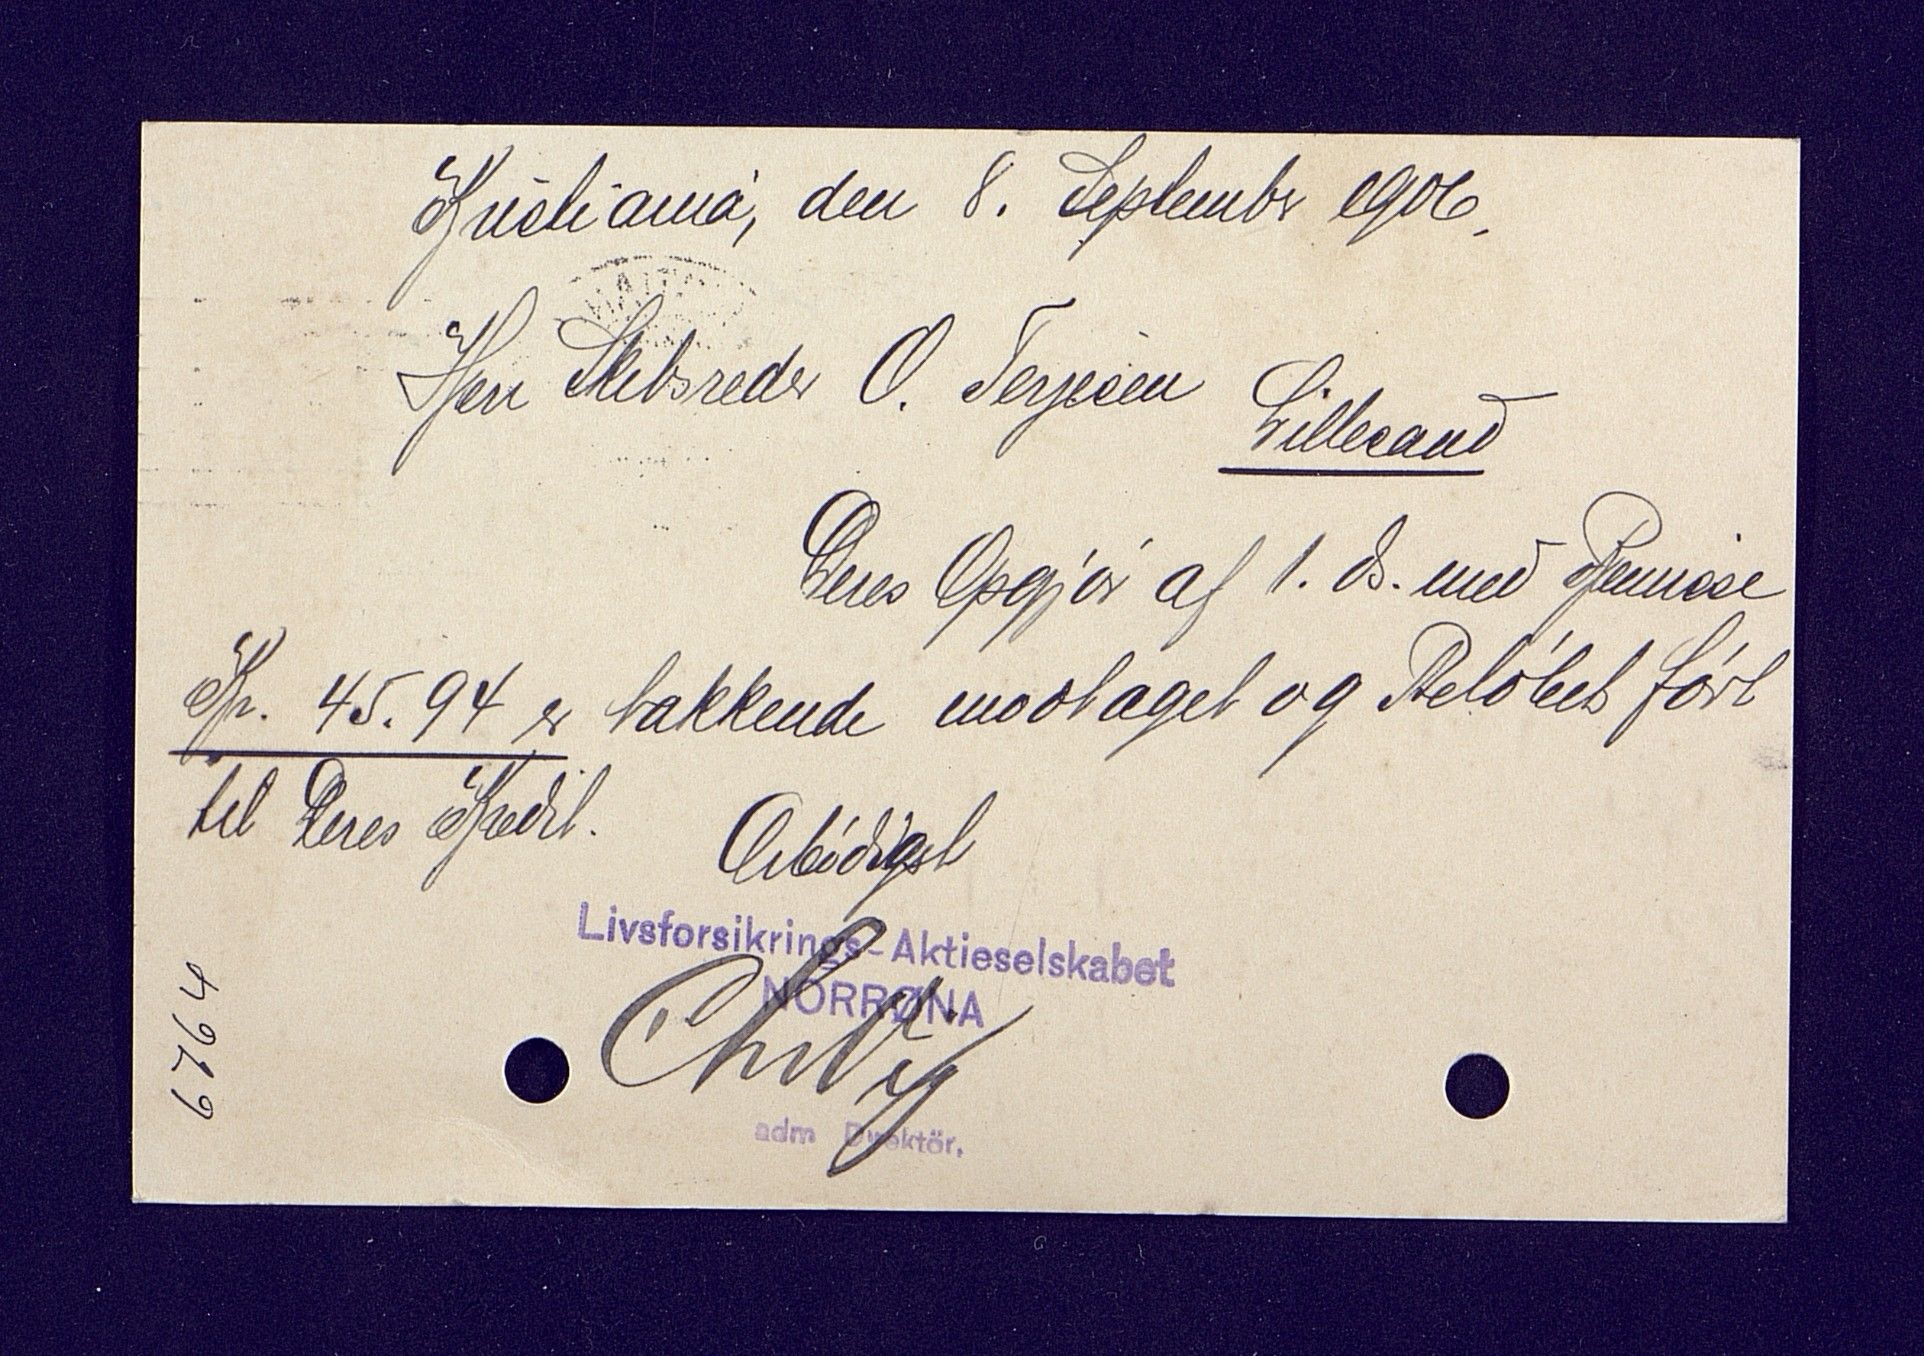 Kristiania, den 8. Septembr 1906.
Herr Skibsreder O. Terjesen
Lillesand
Deres Opgjör af 1. ds. med Remisse
Kr. 45.94 er takkende modtaget og Belöbet fört
til Deres Kredit.
Ærbödigst
Livsforsikrings-Aktieselskabet
NORRØNA
adm Direktör.
6764